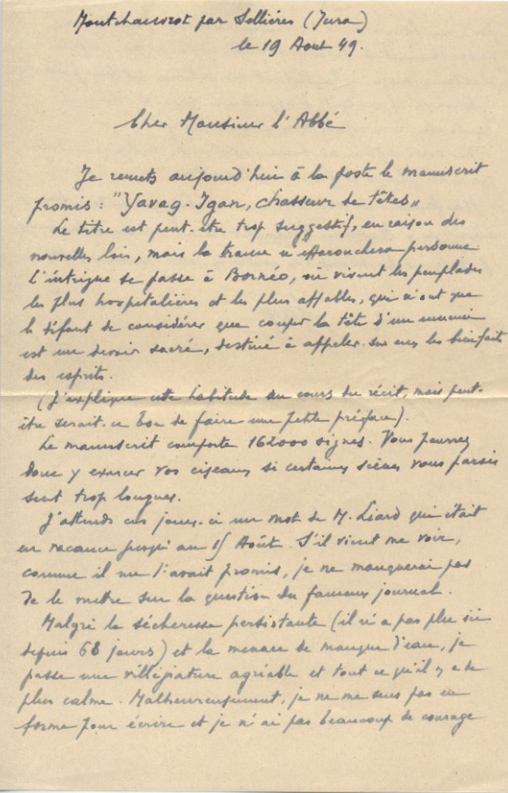 Montchauvrot par Sellières (Jura)
le 19 Aout 49.
Cher Monsieur l'Abbé
Je remets aujourd'hui à la poste le manuscrit
promis : "Yavag-Igan, chasseur de têtes"
Le titre est peut-être trop suggestif, en raison des
nouvelles lois, mais la trame n'effarouchera personne
L'intrigue se passe à Bornéo, où vivent les peuplades
les plus hospitalières et les plus affables, qui n'ont que
le défaut de considérer que couper la tête d'un ennemi
est un devoir sacré, destiné à appeler sur eux les bienfaits
des esprits.
(J'explique cette habitude au cours du récit, mais peut-
être serait-ce bon de faire une petite préface).
Le manuscrit comporte 162000 signes. Vous pourrez
donc y exercer vos ciseaux si certaines scènes vous parais
sent trop longues.
J'attends ces jours-ci un mot de M. Liard qui était
en vacance jusqu'au 15 Août. S'il vient me voir,
comme il me l'avait promis, je ne manquerai pas
de le mettre sur la question du fameux journal.
Malgré la sécheresse persistante (il n'a pas plu ici
depuis 68 jours) et la menace de manque d'eau, je
passe une villégiature agréable et tout ce qu'il y a de
plus calme. Malheureusement, je ne me sens pas en
forme pour écrire et je n'ai pas beaucoup de courage